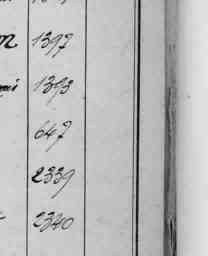 1397
1393
647
2339
2340